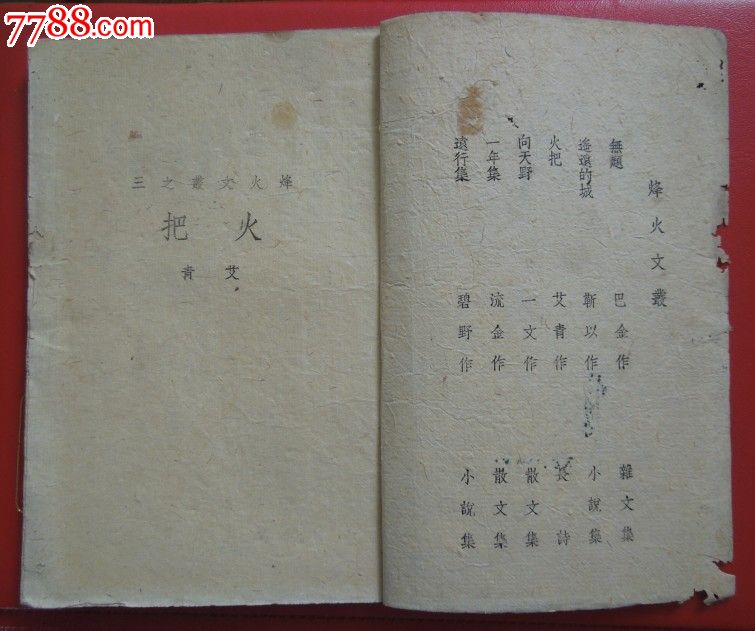 7788.com
烽火文叢
無題 巴金作 雜文集
遙遠的城 靳以作 小說集
火把 艾青作 長詩
向天野 一文作 散文集
一年集 流金作 散文集
遠行集 碧野作 小說集
三之叢文火烽
把火
青艾